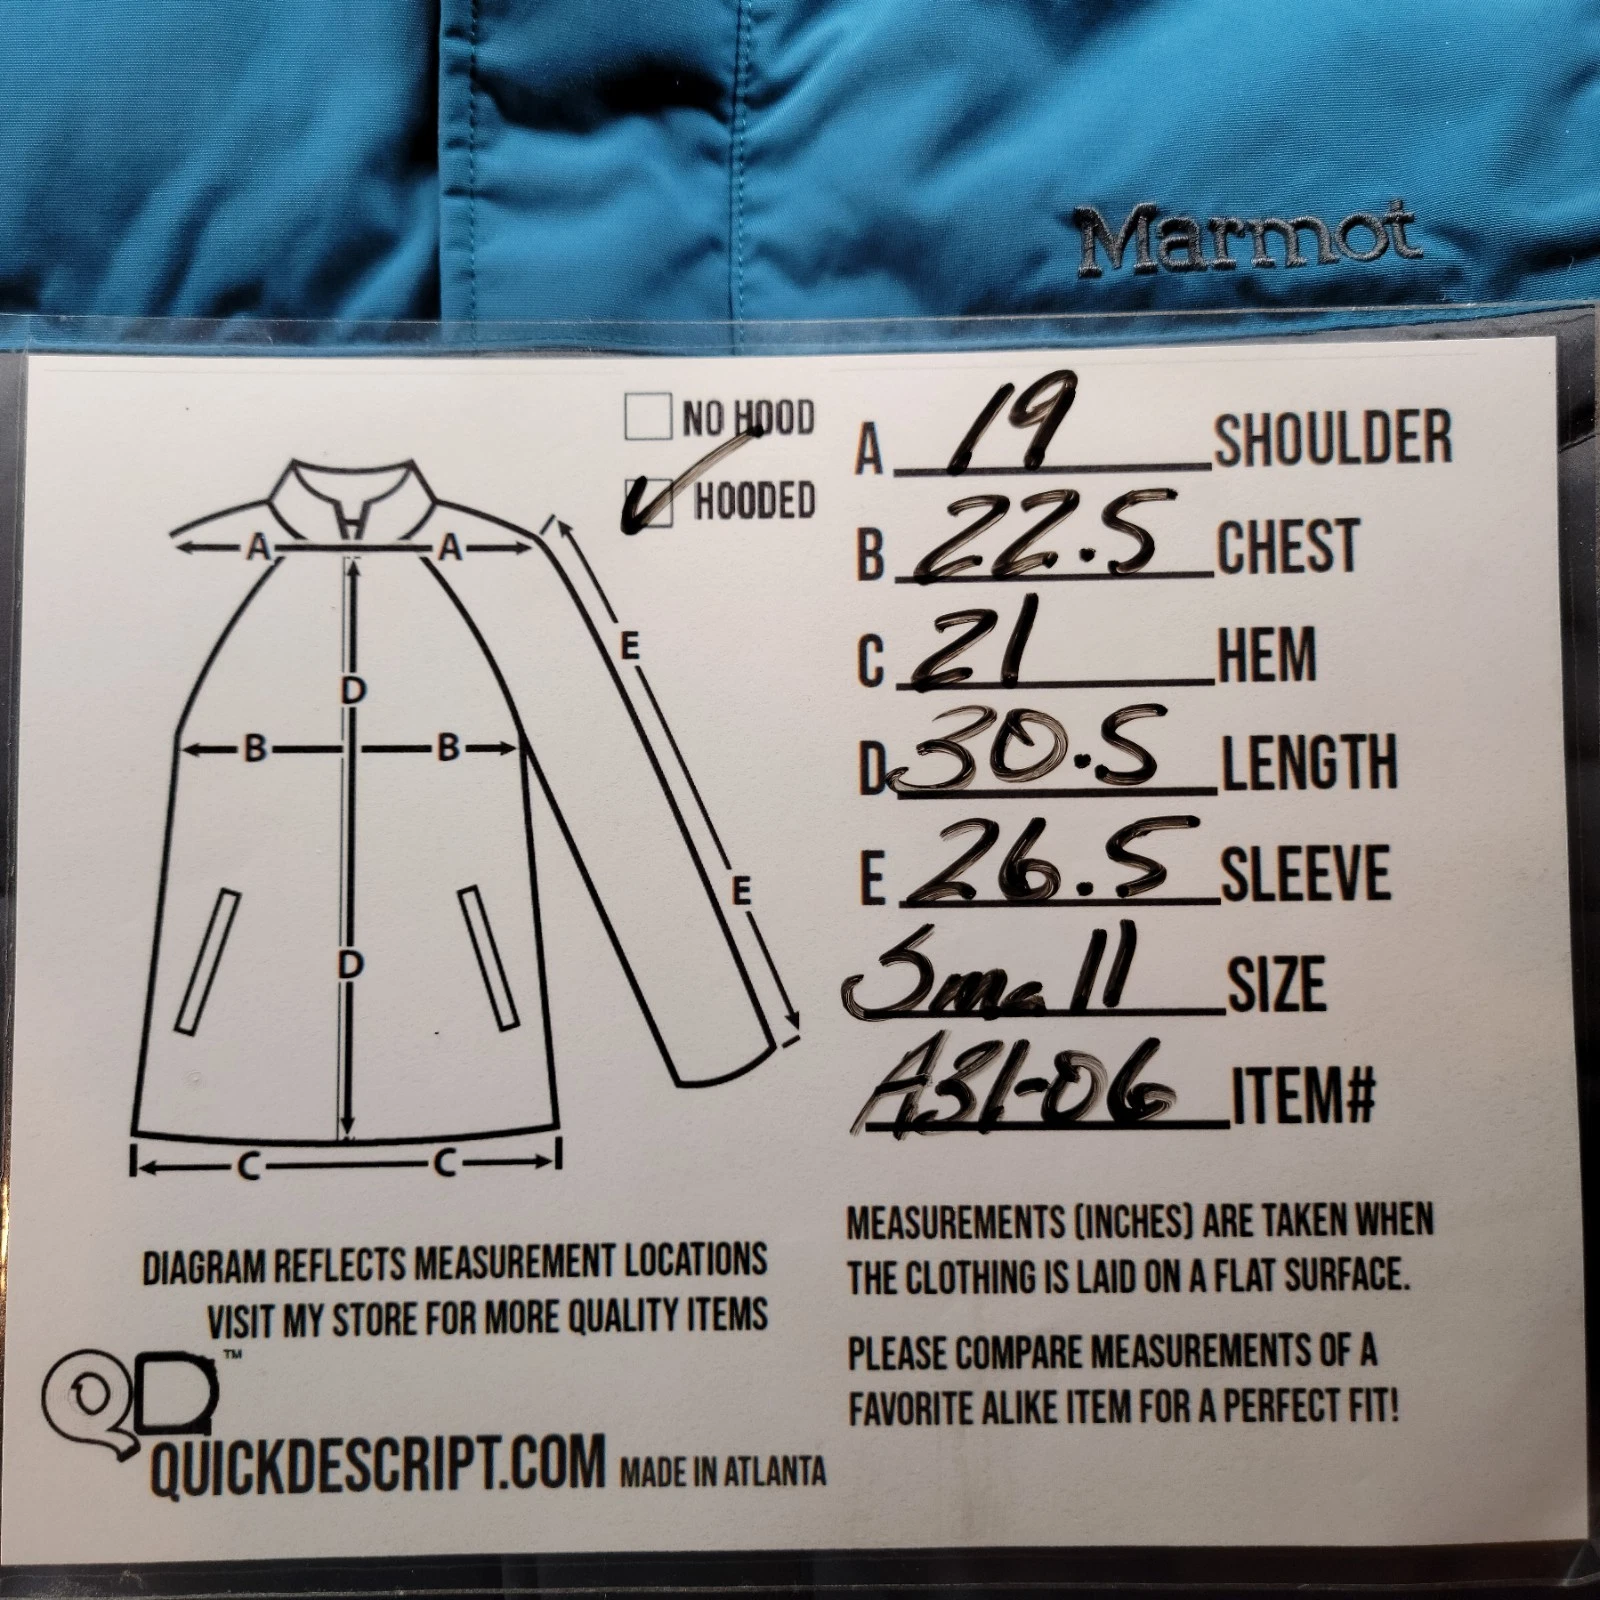 Marmot
NO HOOD
✓ HOODED
A 19 SHOULDER
B 22.5 CHEST
C 21 HEM
D 30.5 LENGTH
E 26.5 SLEEVE
Small SIZE
A31-06 ITEM#
A A
E
D
B B
E
D
C C
DIAGRAM REFLECTS MEASUREMENT LOCATIONS
VISIT MY STORE FOR MORE QUALITY ITEMS
QD™
QUICKDESCRIPT.COM MADE IN ATLANTA
MEASUREMENTS (INCHES) ARE TAKEN WHEN
THE CLOTHING IS LAID ON A FLAT SURFACE.
PLEASE COMPARE MEASUREMENTS OF A
FAVORITE ALIKE ITEM FOR A PERFECT FIT!